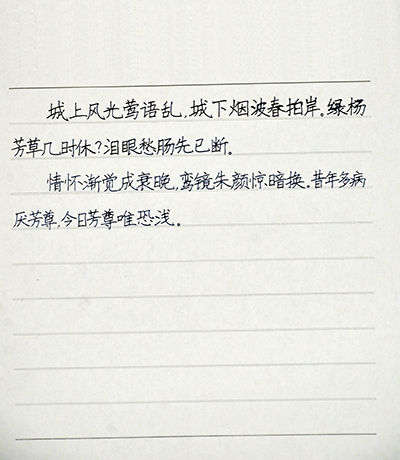 城上风光莺语乱,城下烟波春拍岸。绿杨
芳草几时休?泪眼愁肠先已断。
情怀渐觉成衰晚,鸾镜朱颜惊暗换。昔年多病
厌芳尊,今日芳尊唯恐浅。